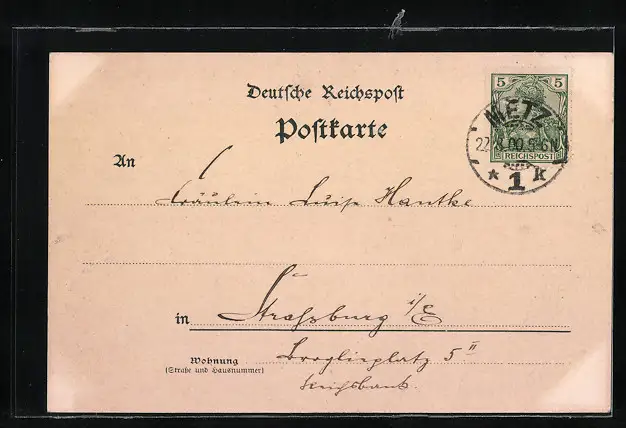 Deutsche Reichspost
Postkarte
5 5
METZ
22.8.00. 5-6N
REICHSPOST
* 1 k
An
Fräulein Luise Hantke
in Strassburg i/E
Wohnung
(Straße und Hausnummer)
Broglieplatz 5 II
Reichsbank.